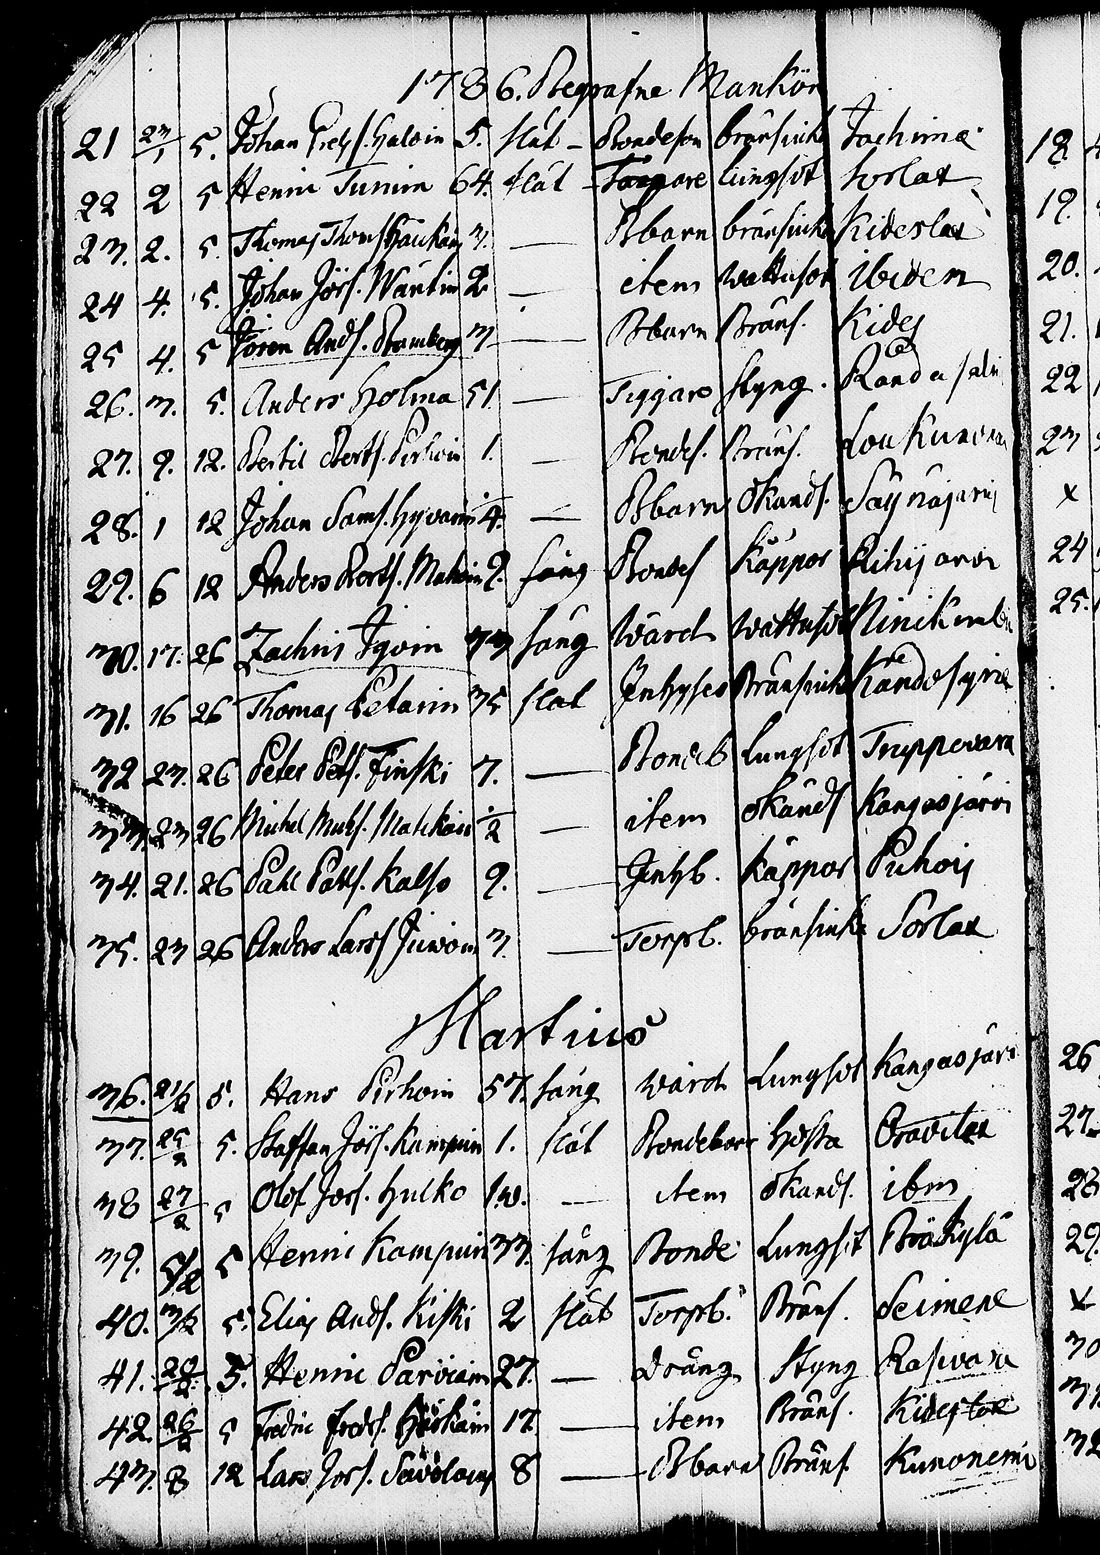 1786. Begrafne Mankön
21 27/1 5. Johan Halvin 5. slät - Bondeson bränsinke Jachima
22 2 5 Henric Turuin 64. slät - Torpare lungsot Sorlax
23. 2. 5. Thomas Thoms. 3. — Bbarn bränsinke Kideslax
24 4. 5. Johan Jörs. Wäntin 2 — item wattusot ibidem
25 4. 5 Jören Ands. Bromberg 3 — Bbarn Bräns. Kides
26. 3. 5. Anders Holma 51. — Tiggare styng. Randasalm
27. 9. 12. Bertil Berts. Pirhoin 1. — Bondes. Bräns. Loukunvara
28. 1 12 Johan Sams. Hyvarin 4. — Bbarn okänds. Säynäjärvi
29. 6 12 Anders Berts. 9. säng Bondes Kåppor Rihijarvi
30. 17. 26 Zachris Igoin 73 säng Wärd wattusot Ninikumbu
31. 16 26 Thomas Petarin 35 slät Inhyses Bränsinke
32 23. 26 Peter Pets. Finski 7. — Bondeb Lungsot Truppovara
33. 23 26 Michel Michs. Matikain ½ — item okänds Kangasjärvi
34. 21. 26 Påhl Påhls. Kalso 9. — Inhb. Kåppor Puhoij
35. 23 26 Anders Larss. 3. — Torpb. bränsinke Sorlax
Martius
36. 21/2 5. Hans Pirhoin 57. säng wärd Lungsot Kangasjärvi
37. 25/2 5. Staffan Jörs. Kumpuin 1. slät Bondebarn Hosta Oravilax
38 27/2 5 Olof Jors. Hulko — item okänds. ibm
39. 5/2 5 Henric Kampuin 33. säng Bonde Lungsot Bräkylä
40. 3/2 5. Elias Ands. Kiski 2 slät Torpb. Bräns. Seimene
41. 28/2 5. Henric Parviain 27. — Dräng Styng Rasivara
42. 26/2 5 Fredric Freds. 17. — item Bräns. Kideslax
43. 8 12 Lars Jors. 8 — Bbarn Bräns. Kunonemi
18.
19.
20.
21.
22
23
x
24
25.
26
27.
28
29.
x
30
31
32